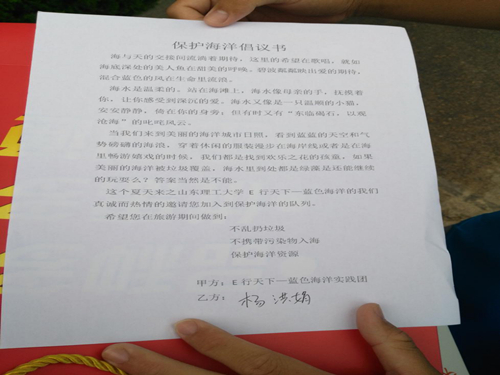 保护海洋倡议书
海与天的交接间流淌着期待，这里的希望在歌唱，犹如
海底深处的美人鱼在甜美的呼唤，碧波粼粼映出爱的期待，
混合蓝色的风在生命里流浪。
海水是温柔的，站在海滩上，海水像母亲的手，抚摸着
你，让你感受到深沉的爱。海水又像是一只温顺的小猫，
安安静静，倚在你的身旁，但有时又有“东临碣石，以观
沧海”的叱咤风云。
当我们来到美丽的海洋城市日照，看到蓝蓝的天空和气
势磅礴的海浪，穿着休闲的服装漫步在海岸线或者是在海
里畅游嬉戏的时候，我们都是找到欢乐之花的孩童，如果
美丽的海洋被垃圾覆盖，海水里到处都是绿藻是还能继续
的玩耍么？答案当然是不能。
这个夏天来之山东理工大学 E 行天下—蓝色海洋的我们
真诚而热情的邀请您加入到保护海洋的队列。
希望您在旅游期间做到：
不乱扔垃圾
不携带污染物入海
保护海洋资源
甲方：E 行天下—蓝色海洋实践团
乙方：杨洪娟